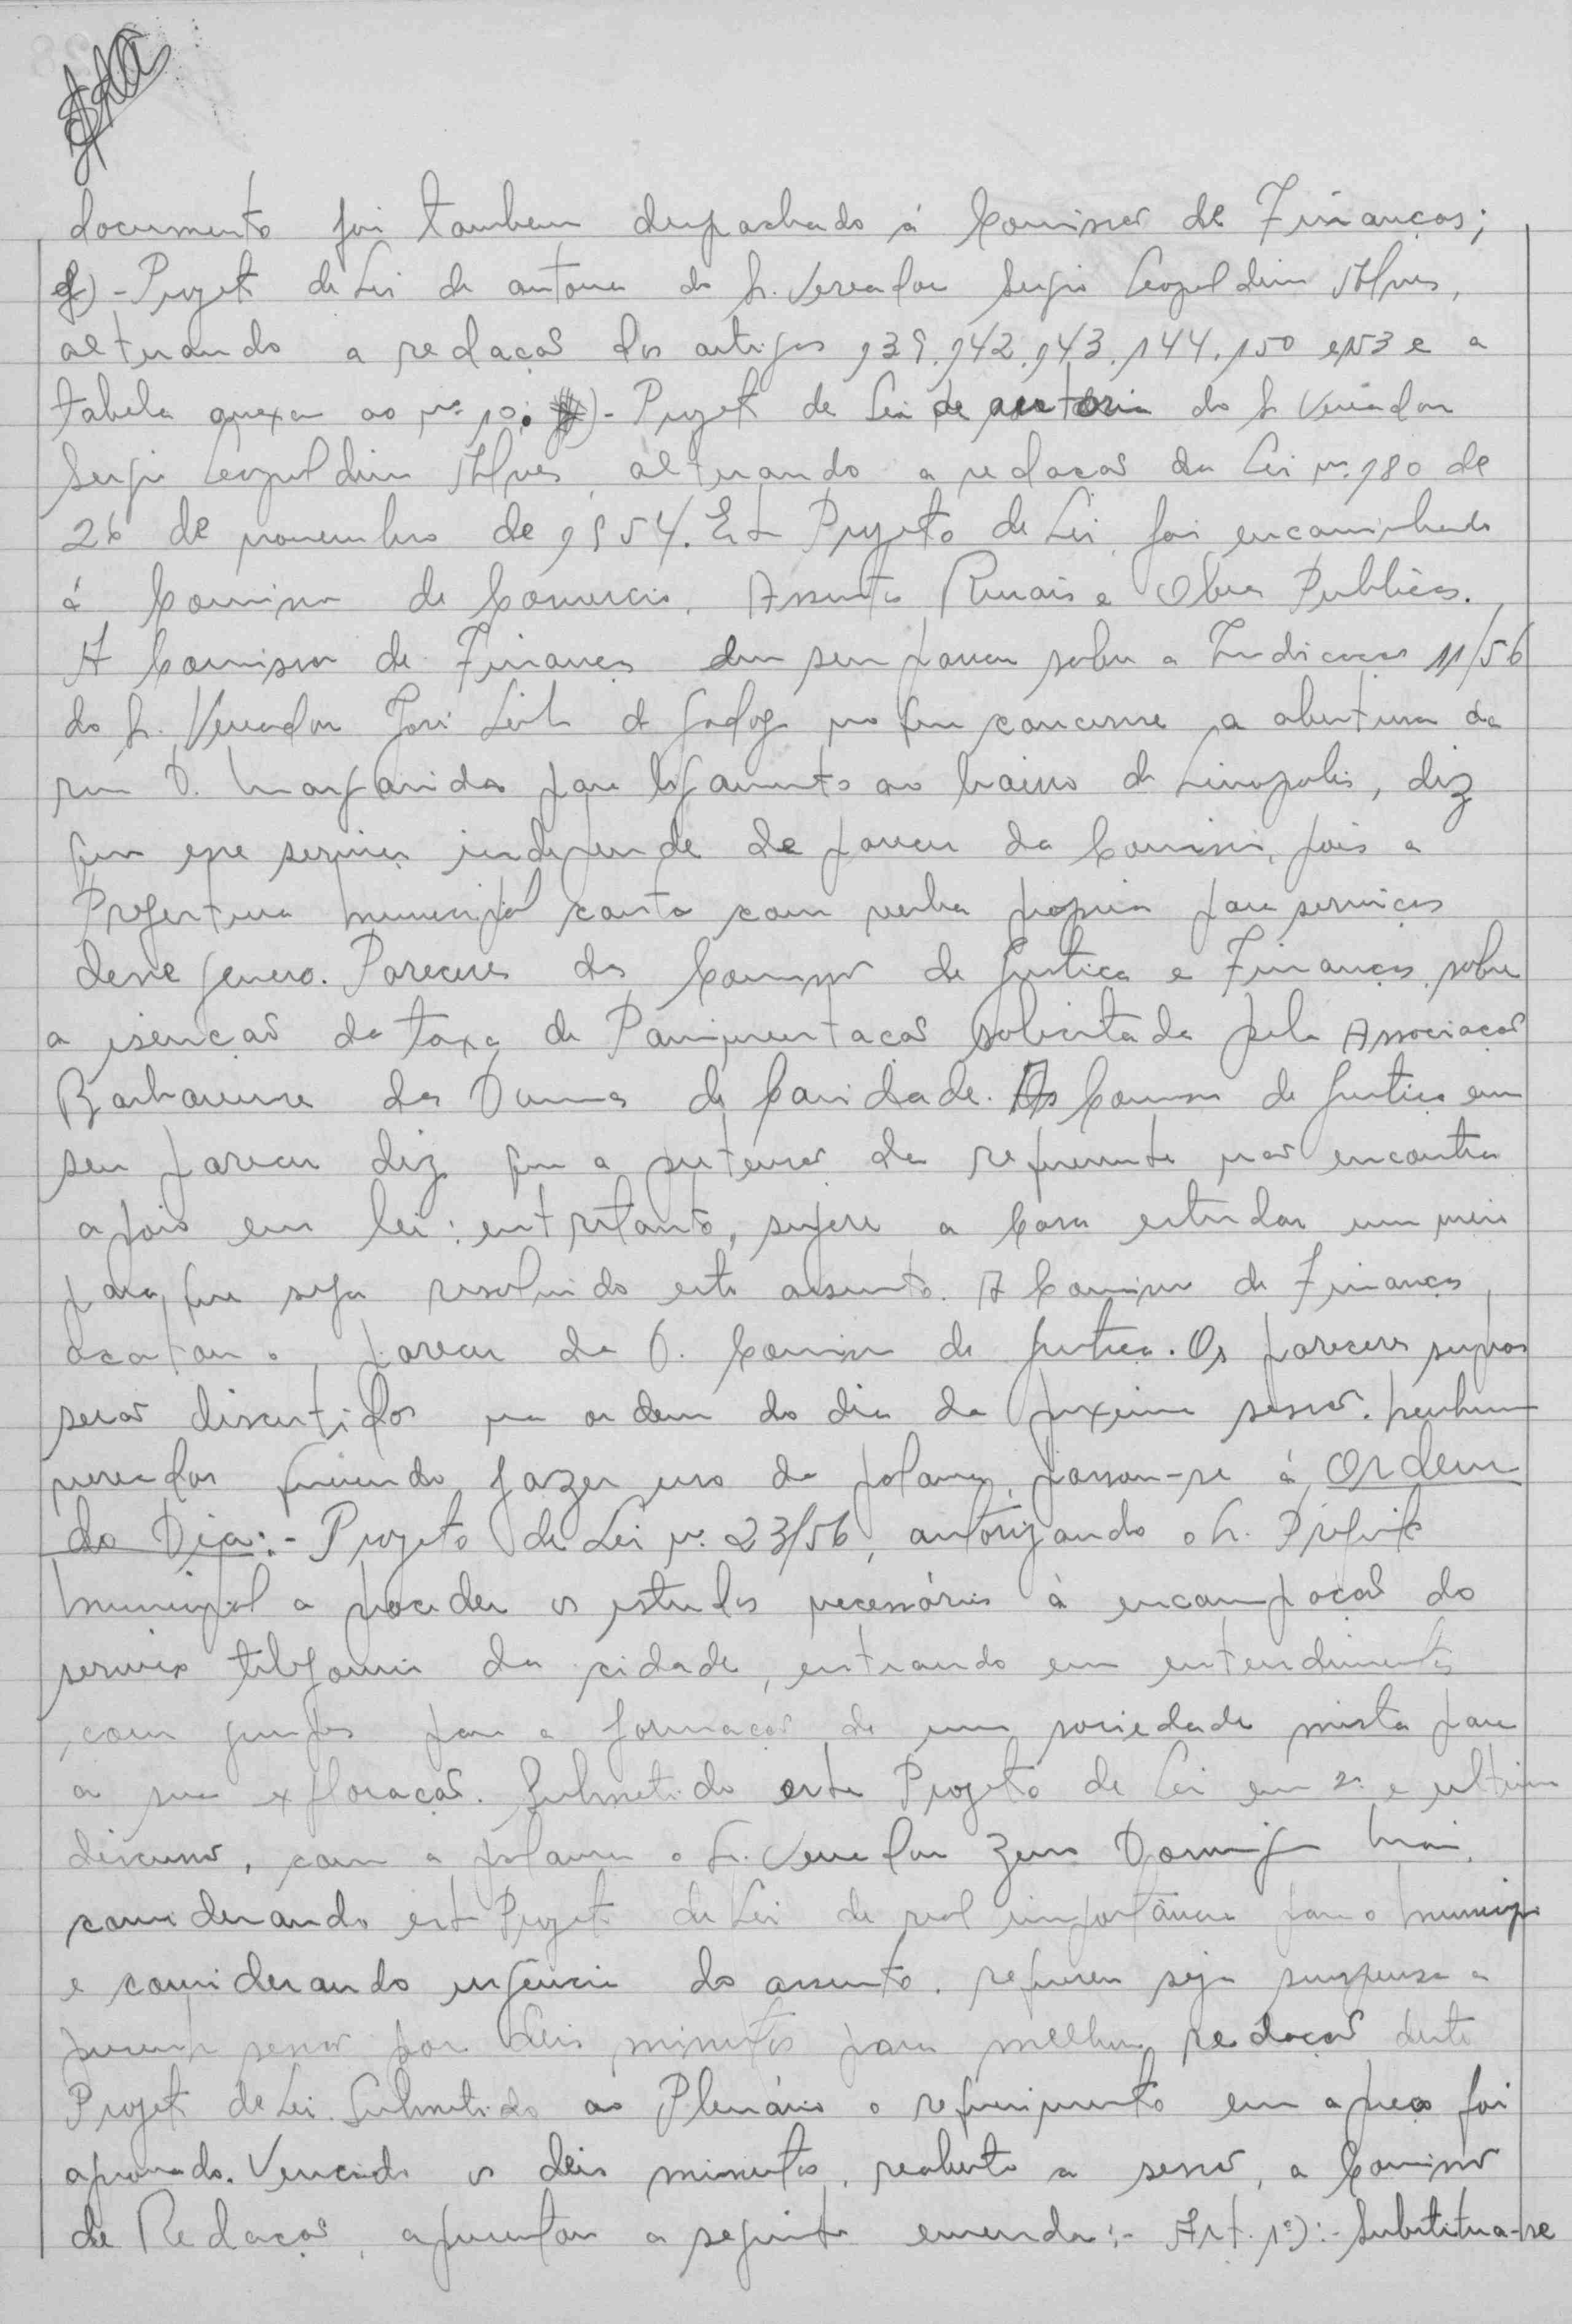 documento foi tambem despachado á Comissão de Finanças;
f) - Projeto de Lei de autoria do Sr. Vereador Sergio Leopoldino Alves,
alterando a redação dos artigos 139.142.143.144.150 e 153 e a
tabela anexa ao nº 10. - Projeto de Lei de autoria do Sr Vereador
Sergio Leopoldino Alves, alterando a redação da Lei nº 180 de
26 de novembro de 1954. Este Projeto de Lei, foi encaminhado
á Comissão de Comercio, Assuntos Rurais e Obras Publicas.
A Comissão de Finanças deu seu parecer sobre a Indicação 11/56
do Sr. Vereador José Leite de Godoy no que concerne a abertura da
rua D. Margarida para ligamento ao bairro de Linopolis, diz
que esse serviço independe de parecer da Comissão, pois a
Prefeitura Municipal conta com verba propria para serviços
desse genero. Pareceres das Comissão de Justiça e Finanças, sobre
a isenção da taxa de Pavimentação solicitada pela Associação
Barbarense das Damas de Caridade. As Comissão de Justiça em
seu parecer diz que a pretensão da requerente não encontra
apoio em lei: entretanto, sugere a Casa estudar um meio
para que seja resolvido este assunto. A Comissão de Finanças,
acatou o parecer da D. Comissão de Justiça. Os pareceres supras
serão discutidos na ordem do dia da proxima sessão. Nenhum
vereador querendo fazer uso da palavra, passou-se á Ordem
do Dia:- Projeto de Lei nº 23/56, autorizando o Sr. Prefeito
Municipal a proceder os estudos necessários à encampação do
serviço telefonico da cidade, entrando em entendimentos
com grupos para a formação de uma sociedade mista para
a sua exploração. Submetido este Projeto de Lei em 2ª e ultima
discussão, com a palavra o Sr. Vereador Zeno Domingos Maia,
considerando este Projeto de Lei de real importância para o Municipio
e considerando urgencia do assunto, requereu seja suspensa a
presente sessão por dois minutos para melhor redação deste
Projeto de Lei. Submetido ao Plenário o requerimento em apreço foi
aprovado. Vencido os dois minutos, reaberta a sessão, a Comissão
de Redação, apresentou a seguinte emenda:- Art. 1º):- Substitua-se